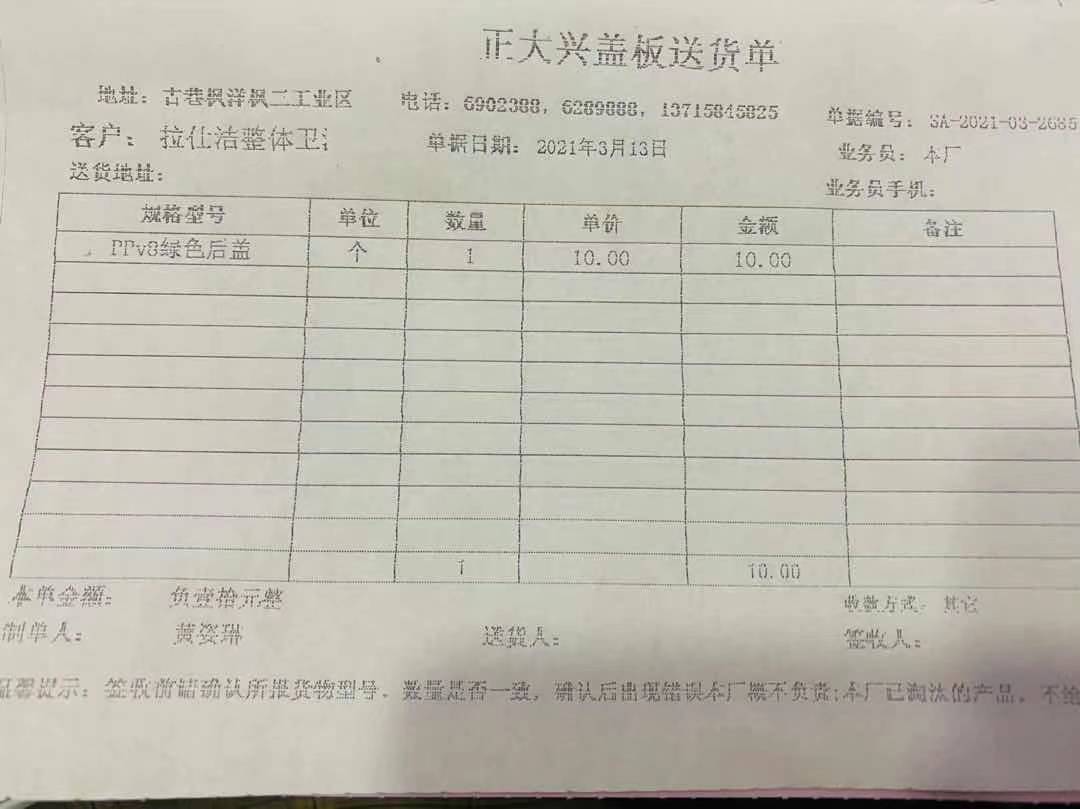 正大兴盖板送货单
地址：古巷枫洋枫二工业区 电话：6902388，6289888，13715845825 单据编号：SA-2021-03-2685
客户：拉仕洁整体卫 单据日期：2021年3月13日 业务员：本厂
送货地址： 业务员手机：
规格型号 单位 数量 单价 金额 备注
PPv8绿色后盖 个 1 10.00 10.00
1 10.00
本单金额： 负壹拾元整 收款方式：其它
制单人： 黄姿琳 送货人： 签收人：
温馨提示：签收前请确认所报货物型号、数量是否一致，确认后出现错误本厂概不负责;本厂已淘汰的产品，不给